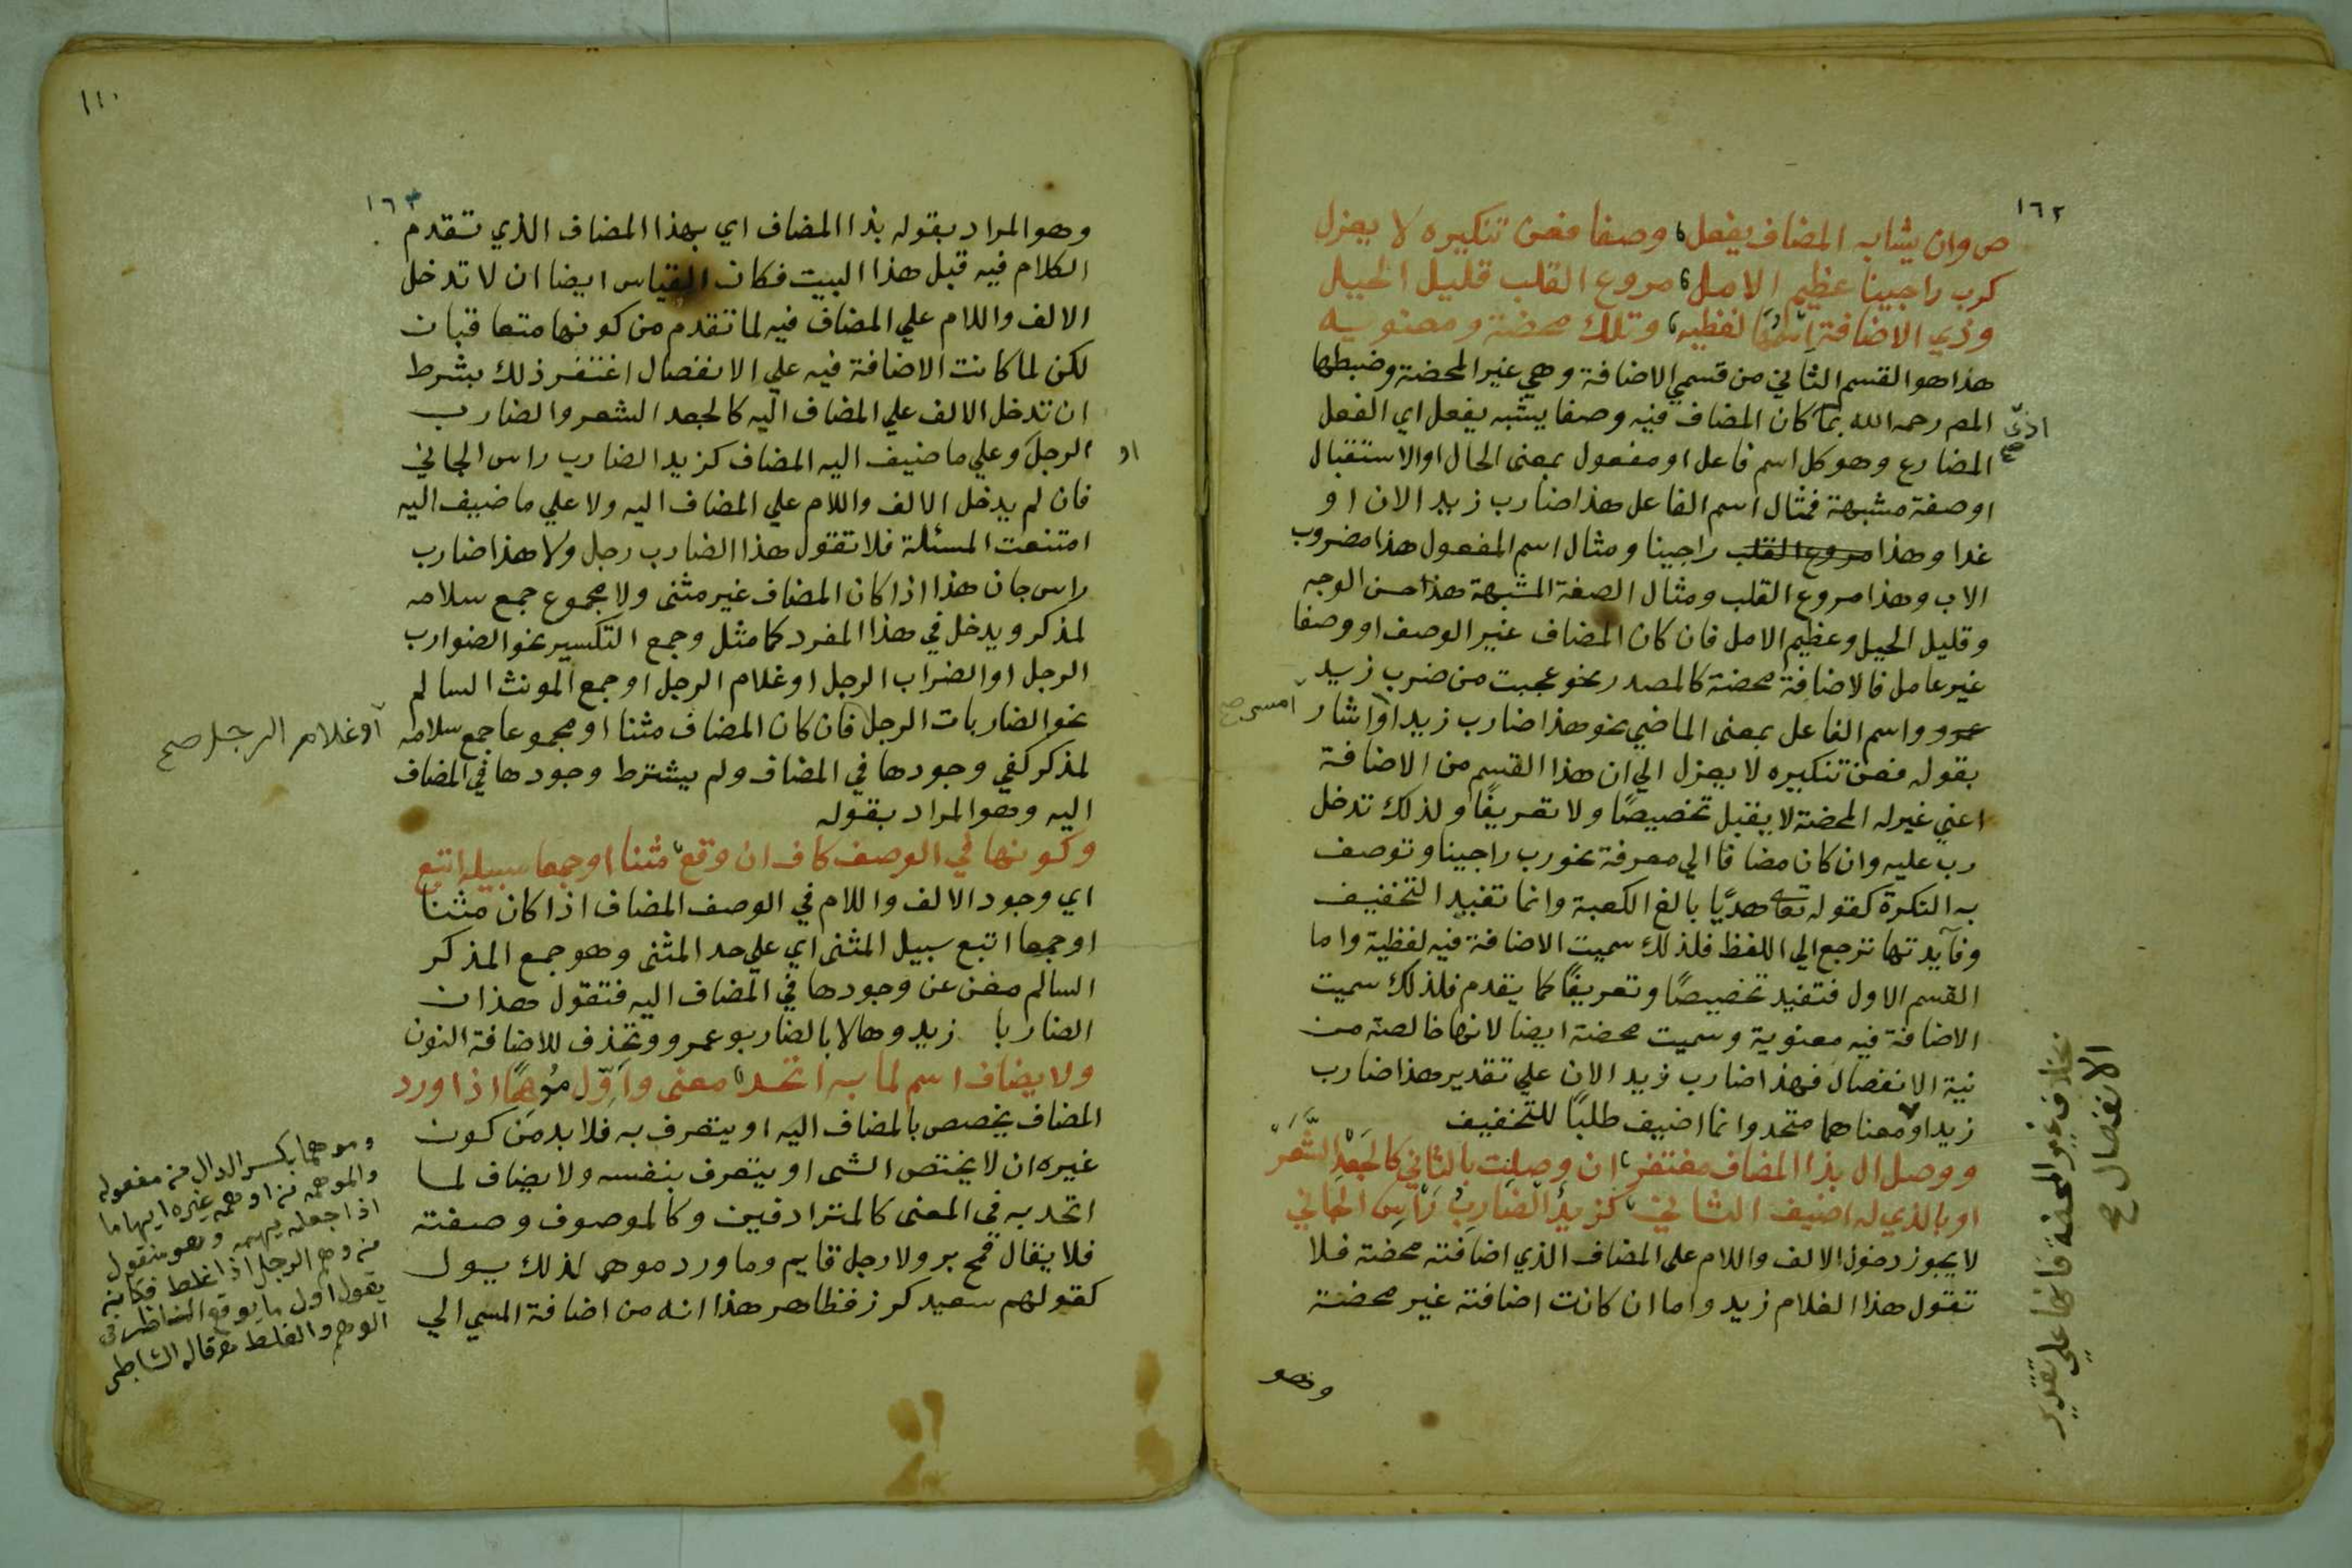 ١٦٢
ص وان يشابه المضاف يفعل وصفا فعن تنكيره لا يعزل
كرب راجينا عظيم الامل مروع القلب قليل الحيل
وذي الاضافة اسمها لفظيه وتلك محضة ومعنويه
هذا هو القسم الثاني من قسمي الاضافة وهي غير المحضة وضبطها
المص رحمه الله بما كان المضاف فيه وصفا يشبه يفعل اي الفعل
المضارع وهو كل اسم فاعل او مفعول بمعنى الحال او الاستقبال
او صفة مشبهة فمثال اسم الفاعل هذا ضارب زيد الان او
غدا وهذا مروع القلب راجينا ومثال اسم المفعول هذا مضروب
الاب وهذا مروع القلب ومثال الصفة المشبهة هذا حسن الوجه
وقليل الحيل وعظيم الامل فان كان المضاف غير الوصف او وصفا
غير عامل فالاضافة محضة كالمصدر نحو عجبت من ضرب زيد
عمرو واسم الفاعل بمعنى الماضي نحو هذا ضارب زيد اوا شار
امس صح
بقوله فعن تنكيره لا يعزل الي ان هذا القسم من الاضافة
اعني غير له المحضة لا يقبل تخصيصًا ولا تعريفًا ولذلك تدخل
رب عليه وان كان مضافا الي معرفة نحو رب راجينا وتوصف
به النكرة كقوله تعالى هديًا بالغ الكعبة وانما تفيد التخفيف
وفآيدتها ترجع الي اللفظ فلذلك سميت الاضافة فيه لفظية واما
القسم الاول فتفيد تخصيصًا وتعريفًا كما يقدم فلذلك سميت
الاضافة فيه معنوية وسميت محضة ايضا لانها خالصة من
نية الانفصال فهذا ضارب زيد الان علي تقدير هذا ضارب
زيدا ومعناهما متحد وانما اضيف طلبًا للتخفيف
بخلاف غير المحضة فانها علي تقدير
الانفصال صح
ووصل ال بذا المضاف مغتفر ان وصلت بالثاني كالجعد الشعر
او بالذي له اضيف الثاني كزيد الضارب راس الجاني
لا يجوز دخول الالف واللام على المضاف الذي اضافته محضة فلا
تقول هذا الغلام زيد واما ان كانت اضافته غير محضة
وهو
١١٠
١٦٣
وهو المراد بقوله بذا المضاف اي بهذا المضاف الذي تقدم
الكلام فيه قبل هذا البيت فكان القياس ايضا ان لا تدخل
الالف واللام علي المضاف فيه لما تقدم من كونها متعاقبان
لكن لما كانت الاضافة فيه علي الانفصال اغتفر ذلك بشرط
ان تدخل الالف علي المضاف اليه كالجعد الشعر والضارب
الرجل وعلي ما ضيف اليه المضاف كزيد الضارب راس الجاني
او
فان لم يدخل الالف واللام علي المضاف اليه ولا علي ما ضيف اليه
امتنعت المسئلة فلا تقول هذا الضارب رجل ولا هذا ضارب
راس جان هذا اذا كان المضاف غير مثنى ولا مجموع جمع سلامه
لمذكر ويدخل في هذا المفرد كما مثل وجمع التكسير نحو الضوارب
الرجل او الضراب الرجل او غلام الرجل او جمع المونث السالم
نحو الضاربات الرجل فان كان المضاف مثنا او مجموعا جمع سلامه
او غلام الرجل صح
لمذكر كفي وجودها في المضاف ولم يشترط وجودها في المضاف
اليه وهو المراد بقوله
وكونها في الوصف كاف ان وقع مثنا او جمعا سبيله اتبع
اي وجود الالف واللام في الوصف المضاف اذا كان مثنا
او جمعا اتبع سبيل المثنى اي علي حد المثنى وهو جمع المذكر
السالم مغن عن وجودها في المضاف اليه فتقول هذان
الضاربا زيد وهالا بالضاربو عمرو وتحذف للاضافة النون
ولا يضاف اسم لما به اتحد معنى واوّل موهمًا اذا ورد
المضاف يخصص بالمضاف اليه او يتعرف به فلا بد من كون
غيره ان لا يختص الشى او يتعرف بنفسه ولا يضاف لما
اتحد به في المعنى كالمترادفين وكالموصوف وصفته
فلا يقال قمح بر ولا رجل قايم وما ورد موهم لذلك يول
كقولهم سعيد كرز فظاهر هذا انه من اضافة المسمي الي
وموهما بكسر الدال من مفعوله
والموهم من اوهم غيره ايهاما
اذا جعله يهم وهو منقول
من وهم الرجل اذا غلط فكانه
يقول اول ما يوقع الناظر في
الوهم والغلط قاله الشاطبي